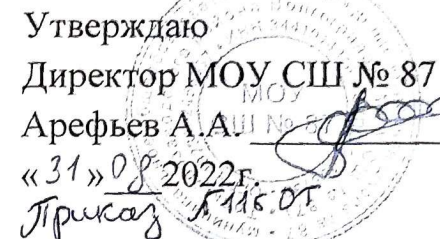 Утверждаю
Директор МОУ СШ № 87
Арефьев А.А.
«31» 08 2022г.
Приказ №116 ОТ